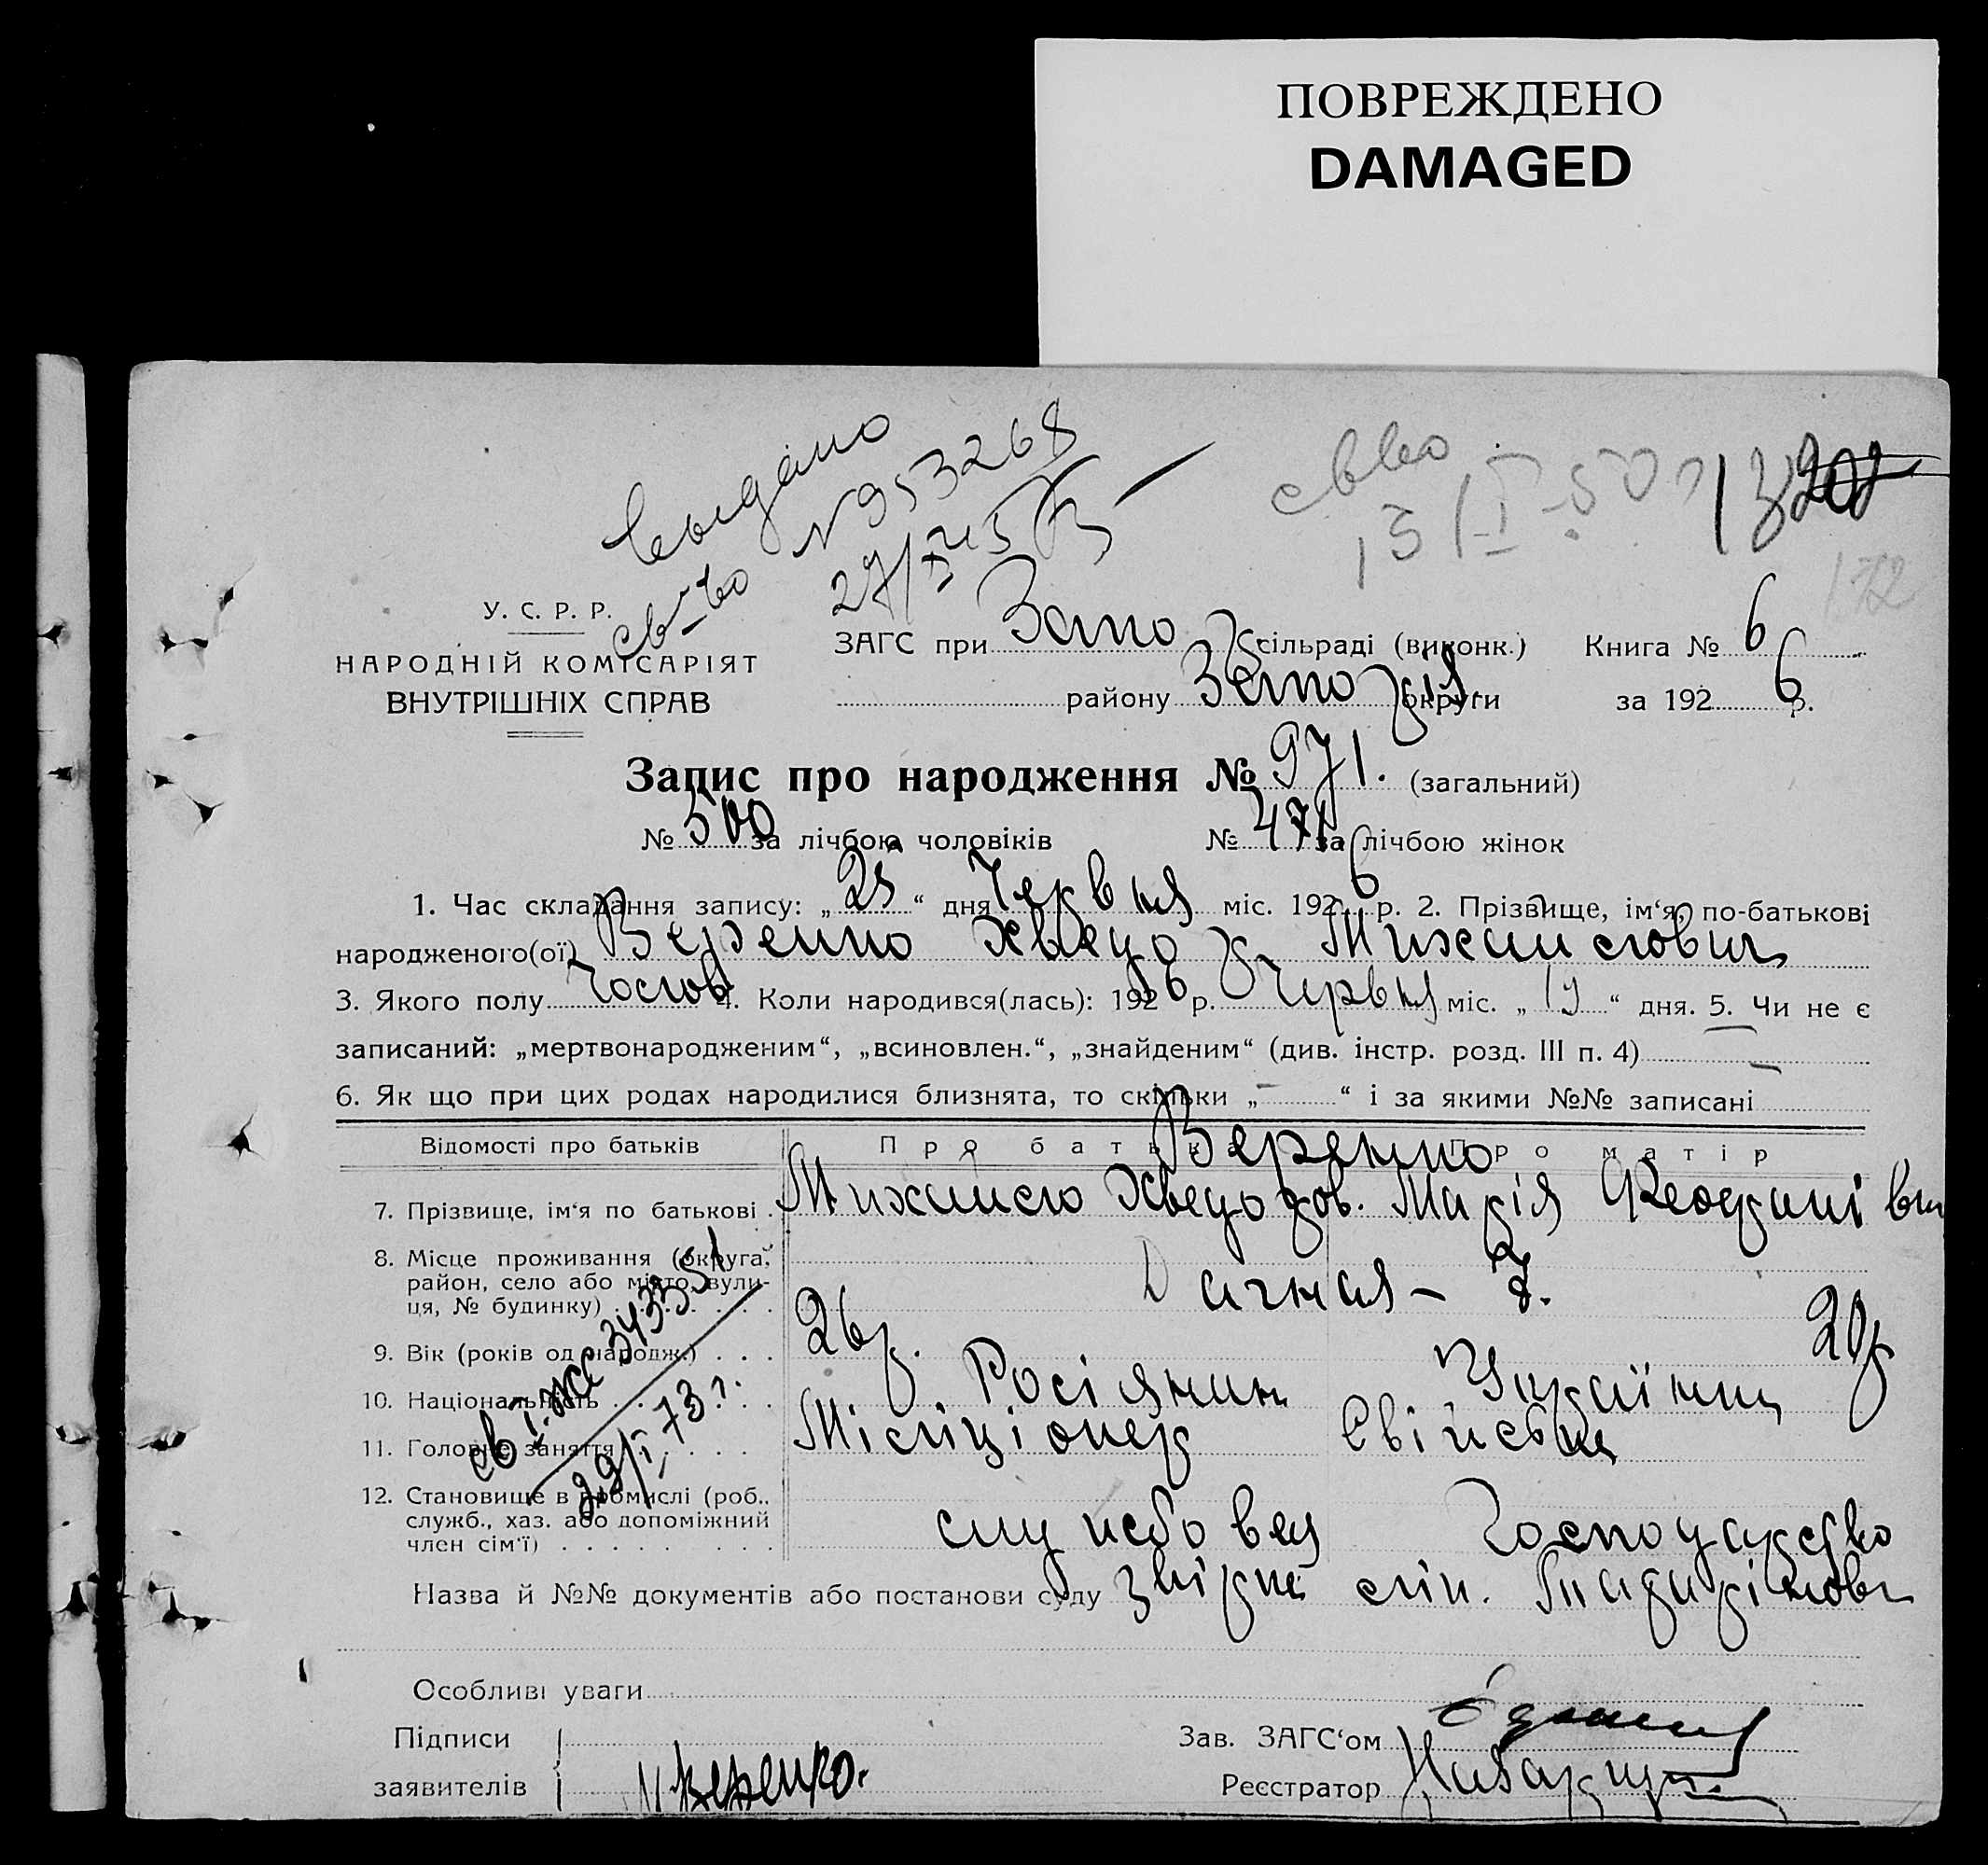 ПОВРЕЖДЕНО
DAMAGED
выдано
св-во N 953268
св-во
202
172
У. С. Р. Р.
НАРОДНІЙ КОМІСАРІЯТ
ВНУТРІШНІХ СПРАВ
ЗАГС при Запо сільраді (виконк.) Книга № 6
району Запо округи за 1926 р.
Запис про народження № 971. (загальний)
№ 500 за лічбою чоловіків № 471 за лічбою жінок
1. Час складання запису: „25“ дня Червня міс. 1926 р. 2. Прізвище, ім‘я, по-батькові
народженого(ої) Веренко Хведор Михайлович
3. Якого полу Чолов 4. Коли народився(лась): 1926 р. Червня міс. „19“ дня. 5. Чи не є
записаний: „мертвонародженим“, „всиновлен.“, „знайденим“ (див. інстр. розд. III п. 4) —
6. Як що при цих родах народилися близнята, то скільки „—“ і за якими №№ записані
Відомості про батьків Про батька Про матір
Веренко
7. Прізвище, ім‘я по батькові . Михайло Хведоров. Марія
8. Місце проживання (округа, район, село або місто, вулиця, № будинку) Дачная – 7.
9. Вік (років од народж.) . . . 26р. 20р
10. Національність Росіянин Українц
11. Головне заняття Міліціонер Свійське
12. Становище в промислі (роб., служб., хаз. або допоміжний член сім‘ї) службовец Господарство
св. І-ЖС 343351
29/I-73 г.
Назва й №№ документів або постанови суду
Особливі уваги
Підписи
заявителів Веренко.
Зав. ЗАГС‘ом
Реєстратор